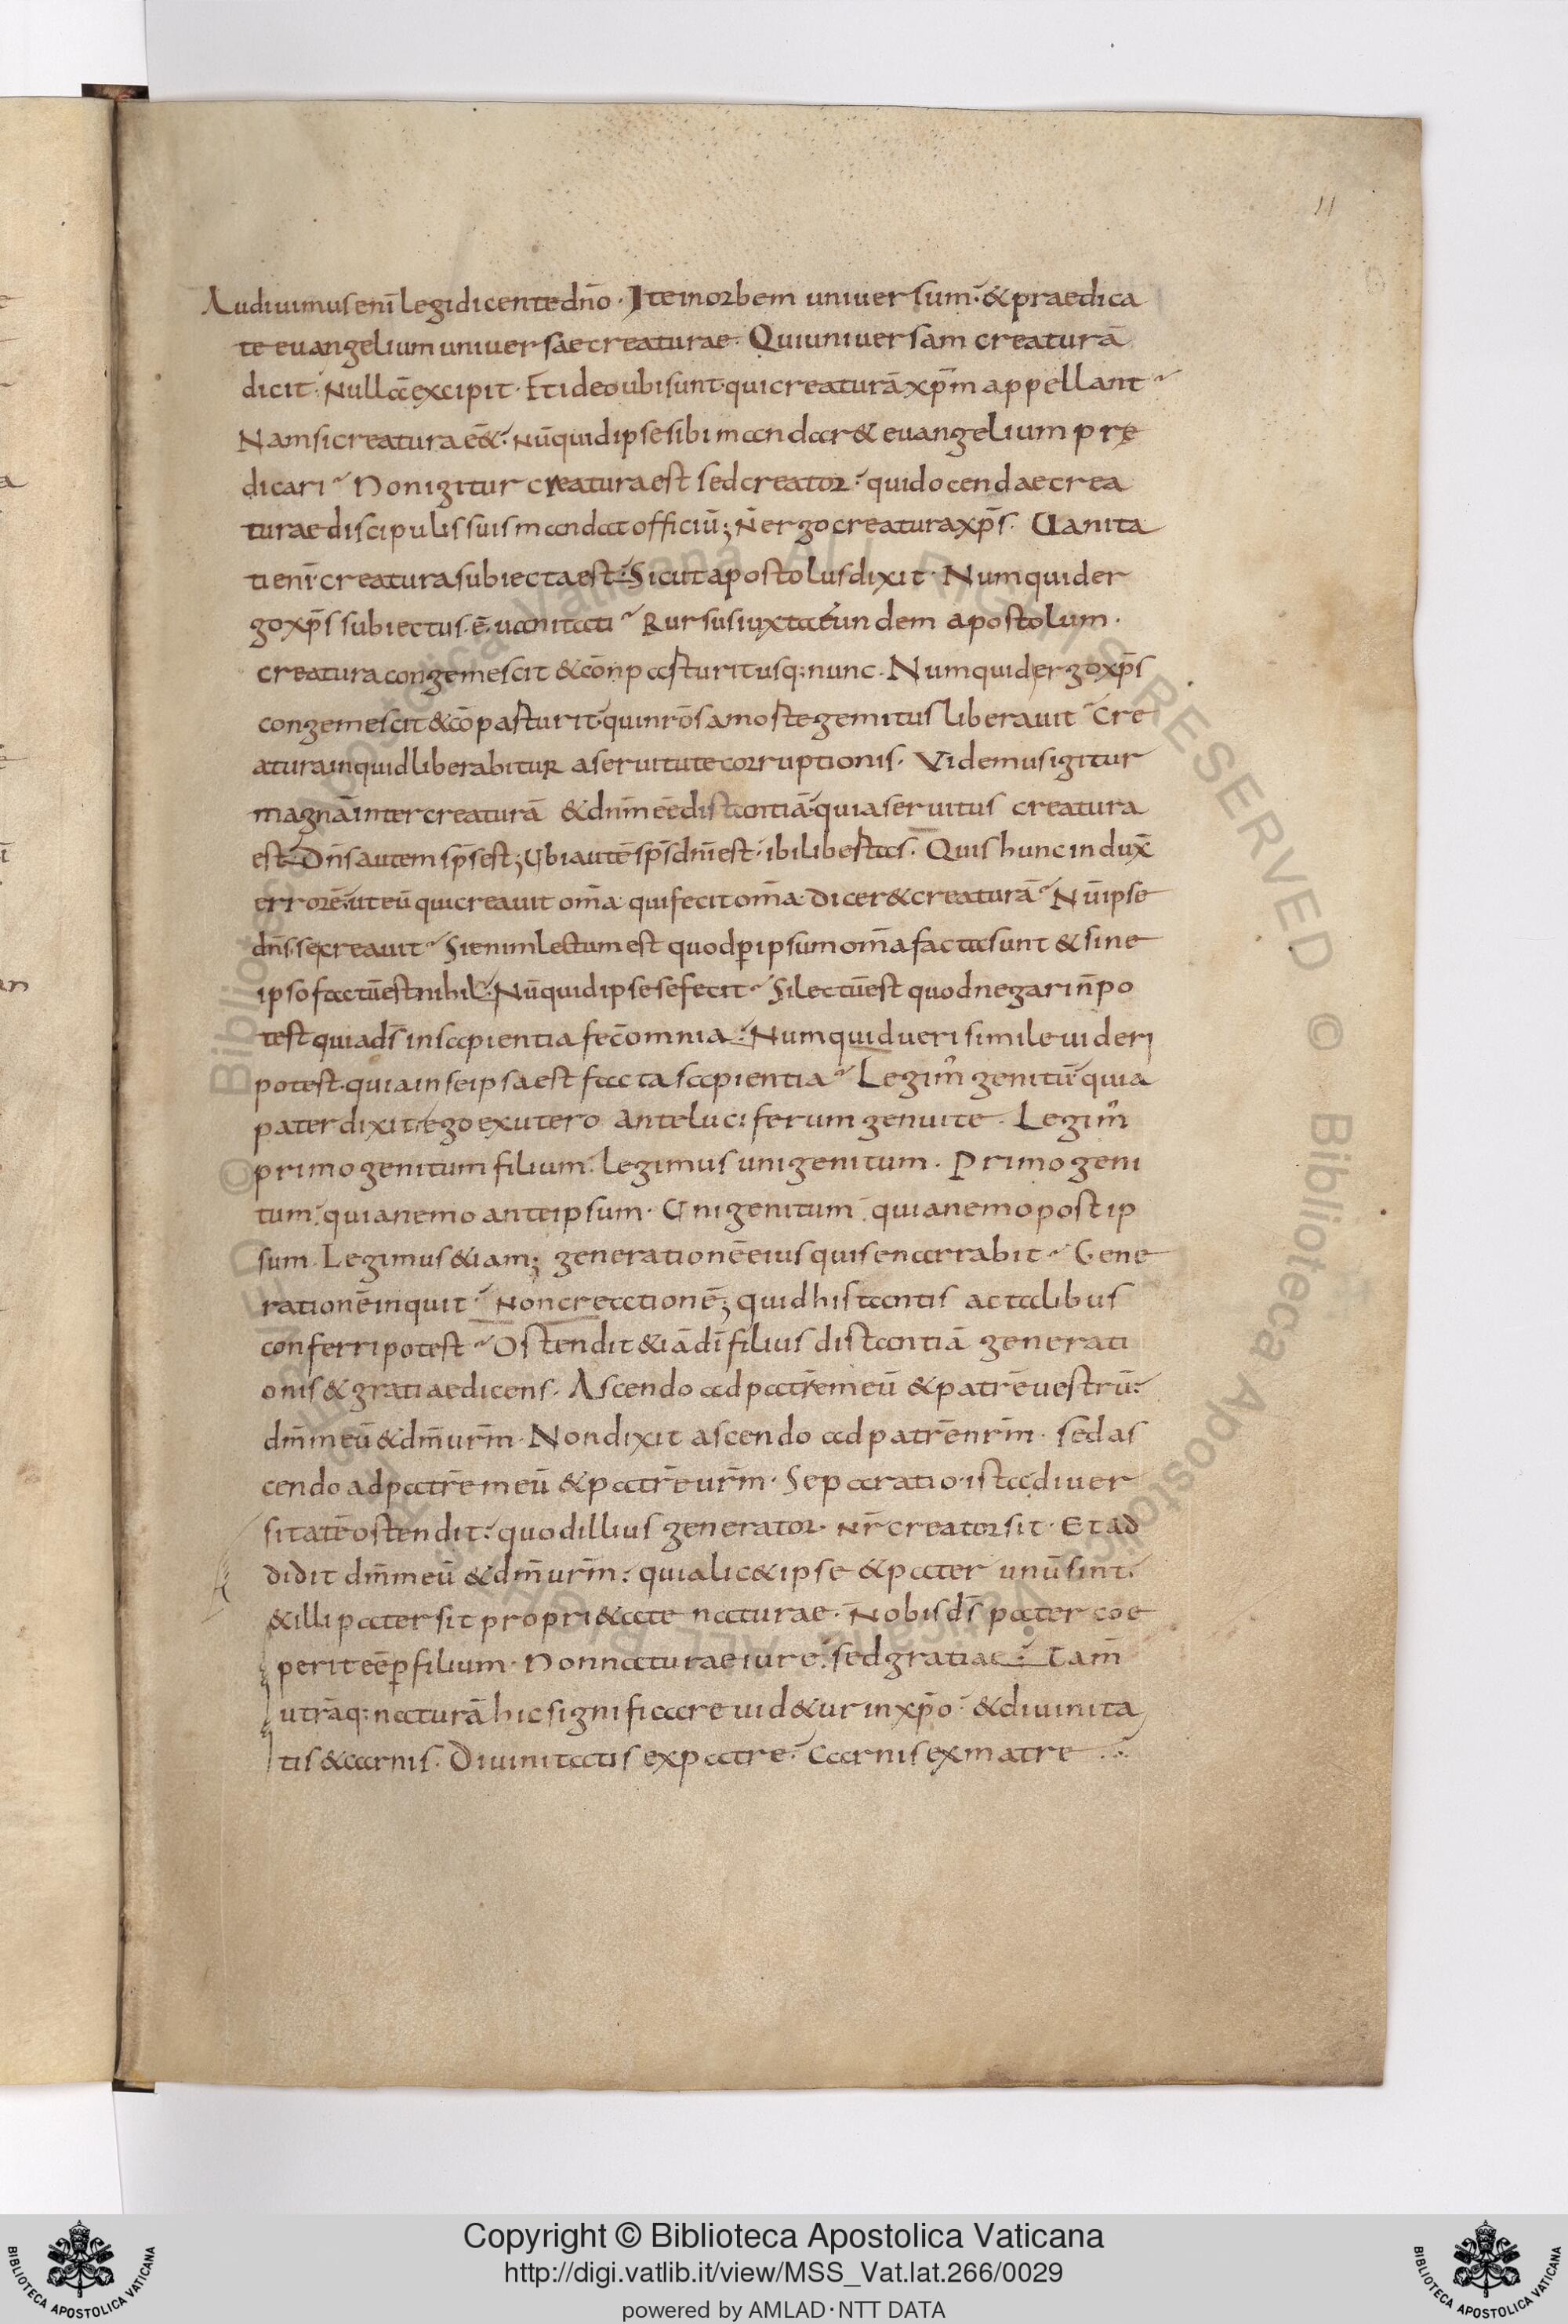 11
Audiuimus enī legi dicente dn̄o · Ite in orbem uniuersum · & praedica
te euangelium uniuersae creaturae · Qui uniuersam creaturā
dicit · Nullā excipit · Et ideo ubi sunt · qui creaturā xp̄m appellant
Nam si creatura e&. Nūquid ipse sibi mandar& euangelium prę
dicari Non igitur creatura est sed creator · qui docendae crea
turae discipulis suis mandat officiū; N̄ ergo creatura xp̄s. Uanita
ti enī creatura subiecta est · Sicut apostolus dixit · Numquid er
go xp̄s subiectus · ē · uanitati Rursus iuxta eundem apostolum ·
creatura congemescit & cōnparturit usq; nunc · Numquid ergo xp̄s
congemescit & cōparturit · qui nr̄os a morte gemitus liberauit Cre
atura inquid liberabitur a seruitute corruptionis. Videmus igitur
magnā inter creaturā & dn̄m eē distantiā quia seruitus creatura
est · Dn̄s autem sp̄s est; Ubi autē sp̄s dn̄i est · ibi libertas · Quis hunc indux̄
errorē · ut eū qui creauit om̄a qui fecit om̄a dicer& creaturā Nū ipse
dn̄s se creauit Si enim lectum est quod p̄ ipsum om̄a facta sunt & sine
ipso factū est nihil · Nūquid ipse se fecit Si lectū est quod negari n̄ po
test quia ds̄ in sapientia fec̄ omnia · Numquid ueri simile uideri
potest · quia in se ipsa est facta sapientia Legim̓ genitū quia
pater dixit · ego ex utero ante luciferum genui te · Legim̓
primogenitum filium · legimus unigenitum · Primogeni
tum · quia nemo ante ipsum · Unigenitum · quia nemo post ip
sum · Legimus &iam; generationē eius quis enarrabit Gene
rationē inquit Non creationē; quid his tantis ac talibus
conferri potest Ostendit &iā dī filius distantiā generati
onis & gratiae dicens · Ascendo ad patrē meū & patrē uestrū ·
dm̄ meū & dm̄ ur̄m · Non dixit ascendo ad patrē nr̄m · sed as
cendo ad patrē meū & patrē ur̄m · Separatio · ista diuer
sitatē ostendit · quod illius generator · nr̄ creator sit · Et ad
didit dm̄ meū & dm̄ ur̄m · quia lic& ipse & pater unū sint ·
& illi pater sit propri&ate naturae · Nobis ds̄ pater coe
perit eē p̄ filium · Non naturae iure · sed gratiae · Tam̄
utrāq; naturā hic significare uid&ur in xp̄o · & diuinita
tis & carnis · Diuinitatis ex patre · Carnis ex matre
© Biblioteca Apostolica Vaticana ALL RIGHTS RESERVED
Copyright © Biblioteca Apostolica Vaticana
http://digi.vatlib.it/view/MSS_Vat.lat.266/0029
powered by AMLAD·NTT DATA
BIBLIOTECA APOSTOLICA VATICANA
BIBLIOTECA APOSTOLICA VATICANA